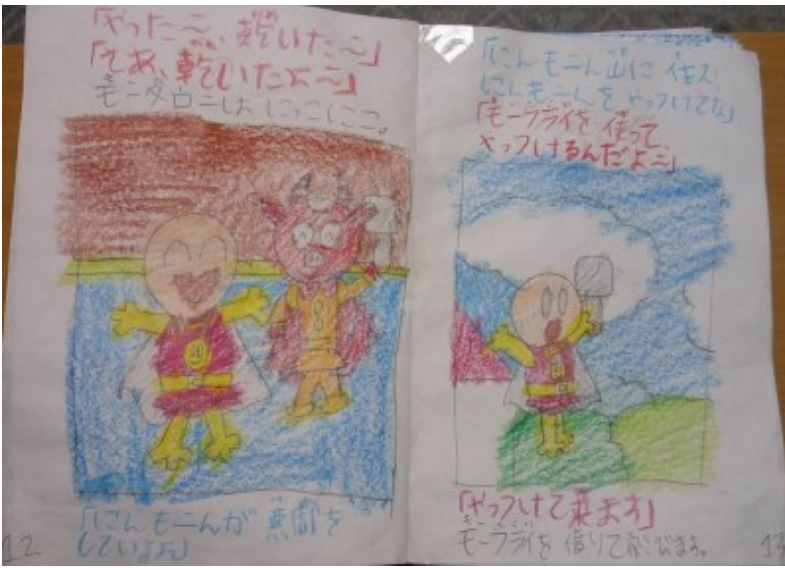 「やった〜、乾いた〜」
「さあ、乾いたよ〜」
モンダウニしは にっこしここ。
「にんもニんが 悪戯を
しているよ」
12
「にんもニん山に 住む
にんもニんを やっつけてな」
「モーラライを 使って、
やっつけるんだよ〜」
「やっつけて来ます」
モーラライを 借りて飛びます。
13